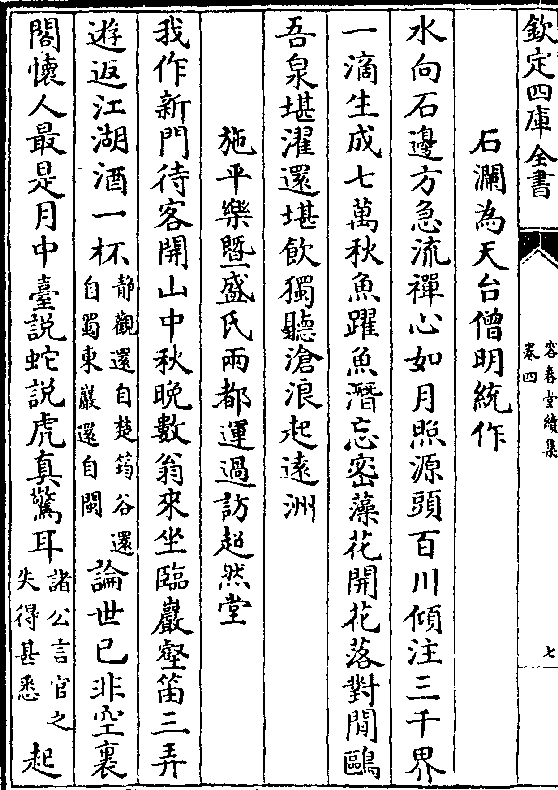 欽定四庫全書
容春堂續集
卷四
七
石瀾為天台僧明統作
水向石邊方急流禪心如月照源頭百川傾注三千界
一滴生成七萬秋魚躍魚潛忘密藻花開花落對閒鷗
吾泉堪濯還堪飲獨聽滄浪起遠洲
施平樂暨盛氏兩都運過訪超然堂
我作新門待客開山中秋晚數翁來坐臨巖壑笛三弄
遊返江湖酒一杯靜觀還自楚筠谷還自蜀東巖還自閩論世已非空裏
閣懷人最是月中臺說蛇說虎真驚耳諸公言官之失得甚悉起